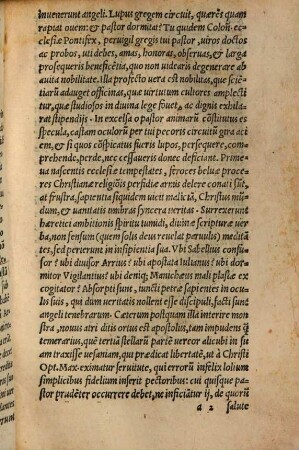 inuenerunt angeli. Lupus gregem circuit, quærẽs quam
rapiat ouem: & pastor dormitat? Tu quidem Coloñ. ec-
clesiæ Pontifex, peruigil gregis tui pastor, uiros doctos
ac probos, uti debes, amas, honoras, obseruas, & larga
prosequeris beneficẽtia, quo non uidearis degenerare ab
auita nobilitate. Illa profecto uera est nobilitas, quæ sciẽ-
tiarũ adauget officinas, quæ uirtutum cultores amplecti
tur, quæ studiosos in diuina lege fouet, ac dignis exhila-
rat stipendijs. In excelsa o pastor animarũ cõstitutus es
specula, castam oculorũ per tui pecoris circuitũ gira aci
em, & si quos cõspicatus fueris lupos, persequere, com-
prehende, perde, nec cessaueris donec deficiant. Primæ-
ua nascentis ecclesiæ tempestates, feroces beluæ proce-
res Christianæ religiõis perfidiæ arnis delere conati sũt,
at frustra, sapientia siquidem uicit malitiã, Christus mũ-
dum, & uanitatis umbras synceræ ueritas. Surrexerunt
hæretici ambitionis spiritu tumidi, diuinæ scripturæ uer
ba, non sensum (quem solis deus reuelat paruulis) medi-
tãtes, sed perierunt in insapiẽtia sua. Vbi Sabellius confu
sor? ubi diuisor Arrius? ubi apostata Iulianus? ubi dor-
mitor Vigilantius? ubi deniq; Manichæus mali plastæ ex
cogitator? Absorpti sunt, iuncti petræ sapientes in ocu
lis suis, qui dum ueritatis nollent esse discipuli, facti sunt
angeli tenebrarum. Cæterum postquam illa interire mon
stra, nouus atri ditis orius est apostolus, tam impudens q̃
temerarius, quẽ tertiã stellarũ partẽ uereor alicubi in su
am traxisse uesaniam, qui prædicat libertatẽ, ut à Christi
Opt. Max. eximatur seruitute, qui errorũ infelix lolium
simplicibus fidelium inserit pectoribus: cui quisque pa-
stor prudẽter occurrere debet, ne inficiãtur ij, de quorũ
a 2 salute